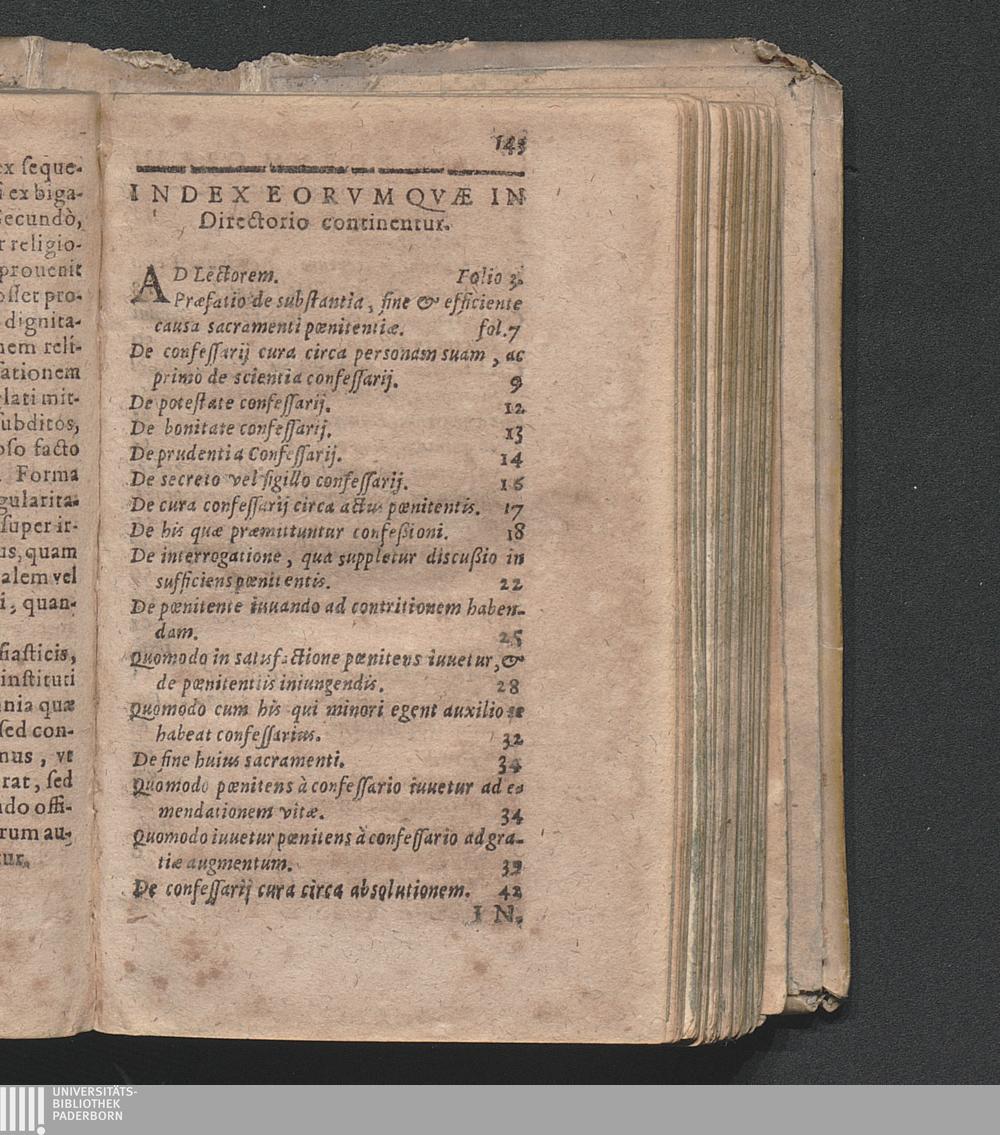 ex ſeque-
ex biga-
Secundò,
religio-
prouenit
oſſet pro-
dignita-
nem reli-
ationem
elati mit-
ſubditos,
pſo facto
Forma
gularita-
ſuper ir-
us, quam
alem vel
i, quan-
ſiaſticis,
inſtituti
nia quæ
ſed con-
mus, vt
rat, ſed
ndo offi-
rum au-
tur.
143
INDEX EORVM QVÆ IN
Directorio continentur.
AD Lectorem. Folio 3.
Præfatio de subſtantia, fine & efficiente
causa sacramenti pœnitentiæ. fol.7
De confeſſarij cura circa personam suam, ac
primò de scientia confeſſarij. 9
De poteſtate confeſſarij. 12
De bonitate confeſſarij. 13
De prudentia Confeſſarij. 14
De secreto vel sigillo confeſſarij. 16
De cura confeſſarij circa actus pœnitentis. 17
De his quæ præmittuntur confeßioni. 18
De interrogatione, qua suppletur discußio in
sufficiens pœnitentis. 22
De pœnitente iuuando ad contritionem haben-
dam. 25
Quomodo in satisfactione pœnitens iuuetur, &
de pœnitentiis iniungendis. 28
Quomodo cum his qui minori egent auxilio se
habeat confeſſarius. 32
De fine huius sacramenti. 34
Quomodo pœnitens à confeſſario iuuetur ad e-
mendationem vitæ. 34
Quomodo iuuetur pœnitens à confeſſario ad gra-
tiæ augmentum. 39
De confeſſarij cura circa absolutionem. 42
IN-
UNIVERSITÄTS-
BIBLIOTHEK
PADERBORN